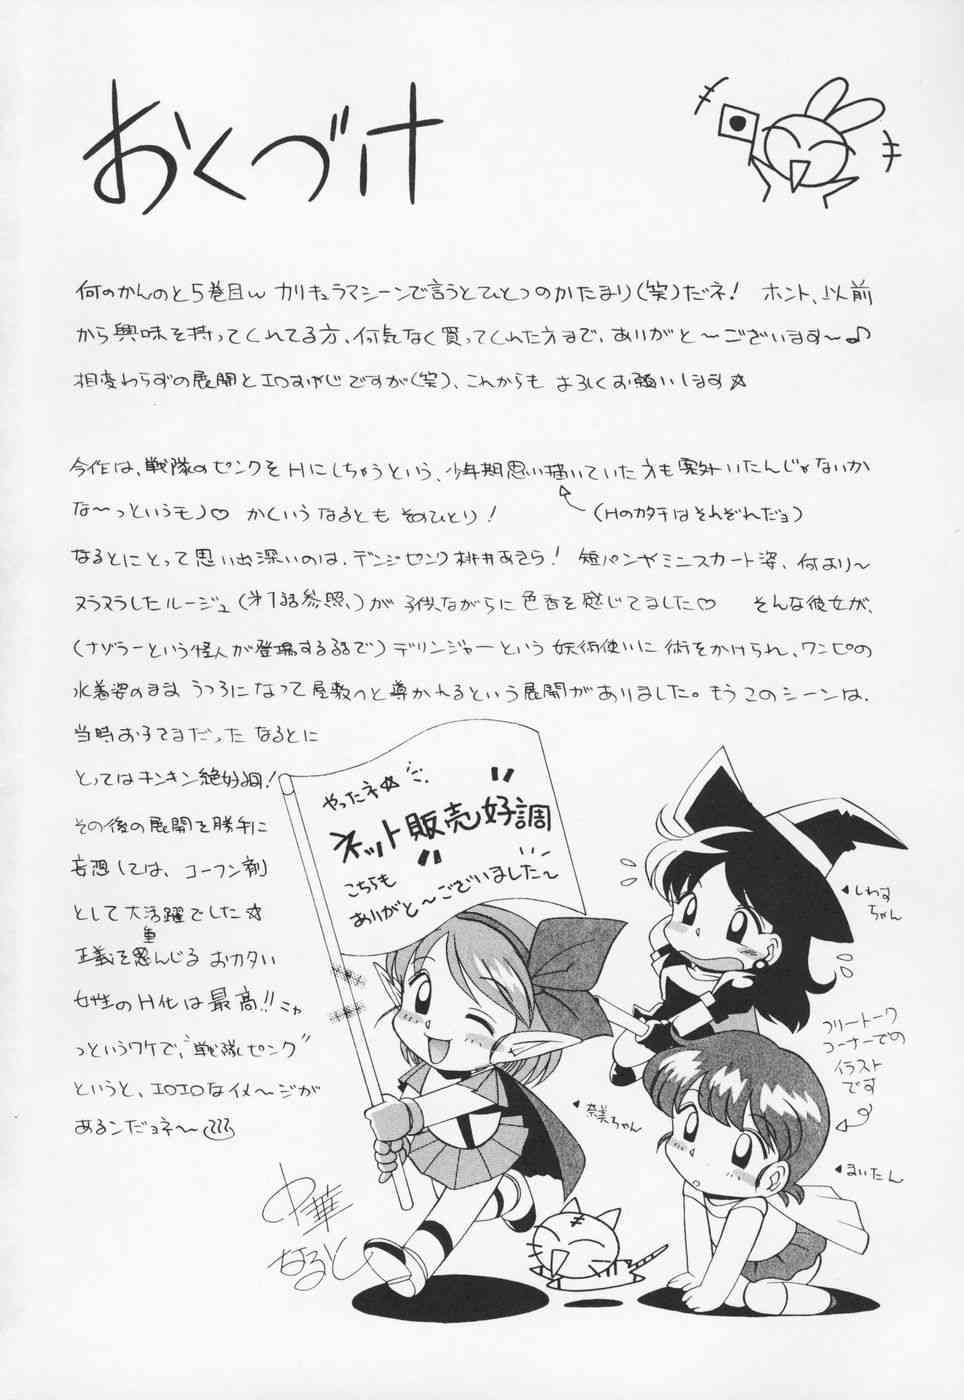 おくづけ
何のかんのと5巻目w カリキュラマシーンで言うとひとつのかたまり(笑)だネ! ホント、以前
から興味を持ってくれてる方、何気なく買ってくれた方まで、ありがと〜ございます〜♪
相変わらずの展開とエロすけじですが(笑)、これからも よろしくお願いします☆
今作は、戦隊のピンクをHにしちゃうという、少年期思い描いていた方も案外いたんじゃないか
な〜っというモノ♡ かくいうなるとも そのひとり!
(Hのカタチはそれぞれだョ)
なるとにとって思い出深いのは、デンジピンク桃井あきら! 短パンやミニスカート姿、何より〜
ヌラヌラしたルージュ(第1話参照)が子供ながらに色香を感じてました♡ そんな彼女が、
(ナゾラーという怪人が登場する話で)デリンジャーという妖術使いに術をかけられ、ワンピの
水着姿のまま うつろになって屋敷へと導かれるという展開がありました。もうこのシーンは、
当時お子てまだった なるとに
とってはキンキン絶好調!
その後の展開を勝手に
妄想しては、コーフン剤
として大活躍でした☆
正義を重んじる おカタい
女性のH化は最高!! ニャ
っというワケで、"戦隊ピンク"
というと、エロエロなイメ〜ジが
あるンだョネ〜
やったネ☆
ネット販売好調
こちらも
ありがと〜ございました〜
しわす
ちゃん
フリートーク
コーナーでの
イラスト
です
奈美ちゃん
まいたん
中華
なると